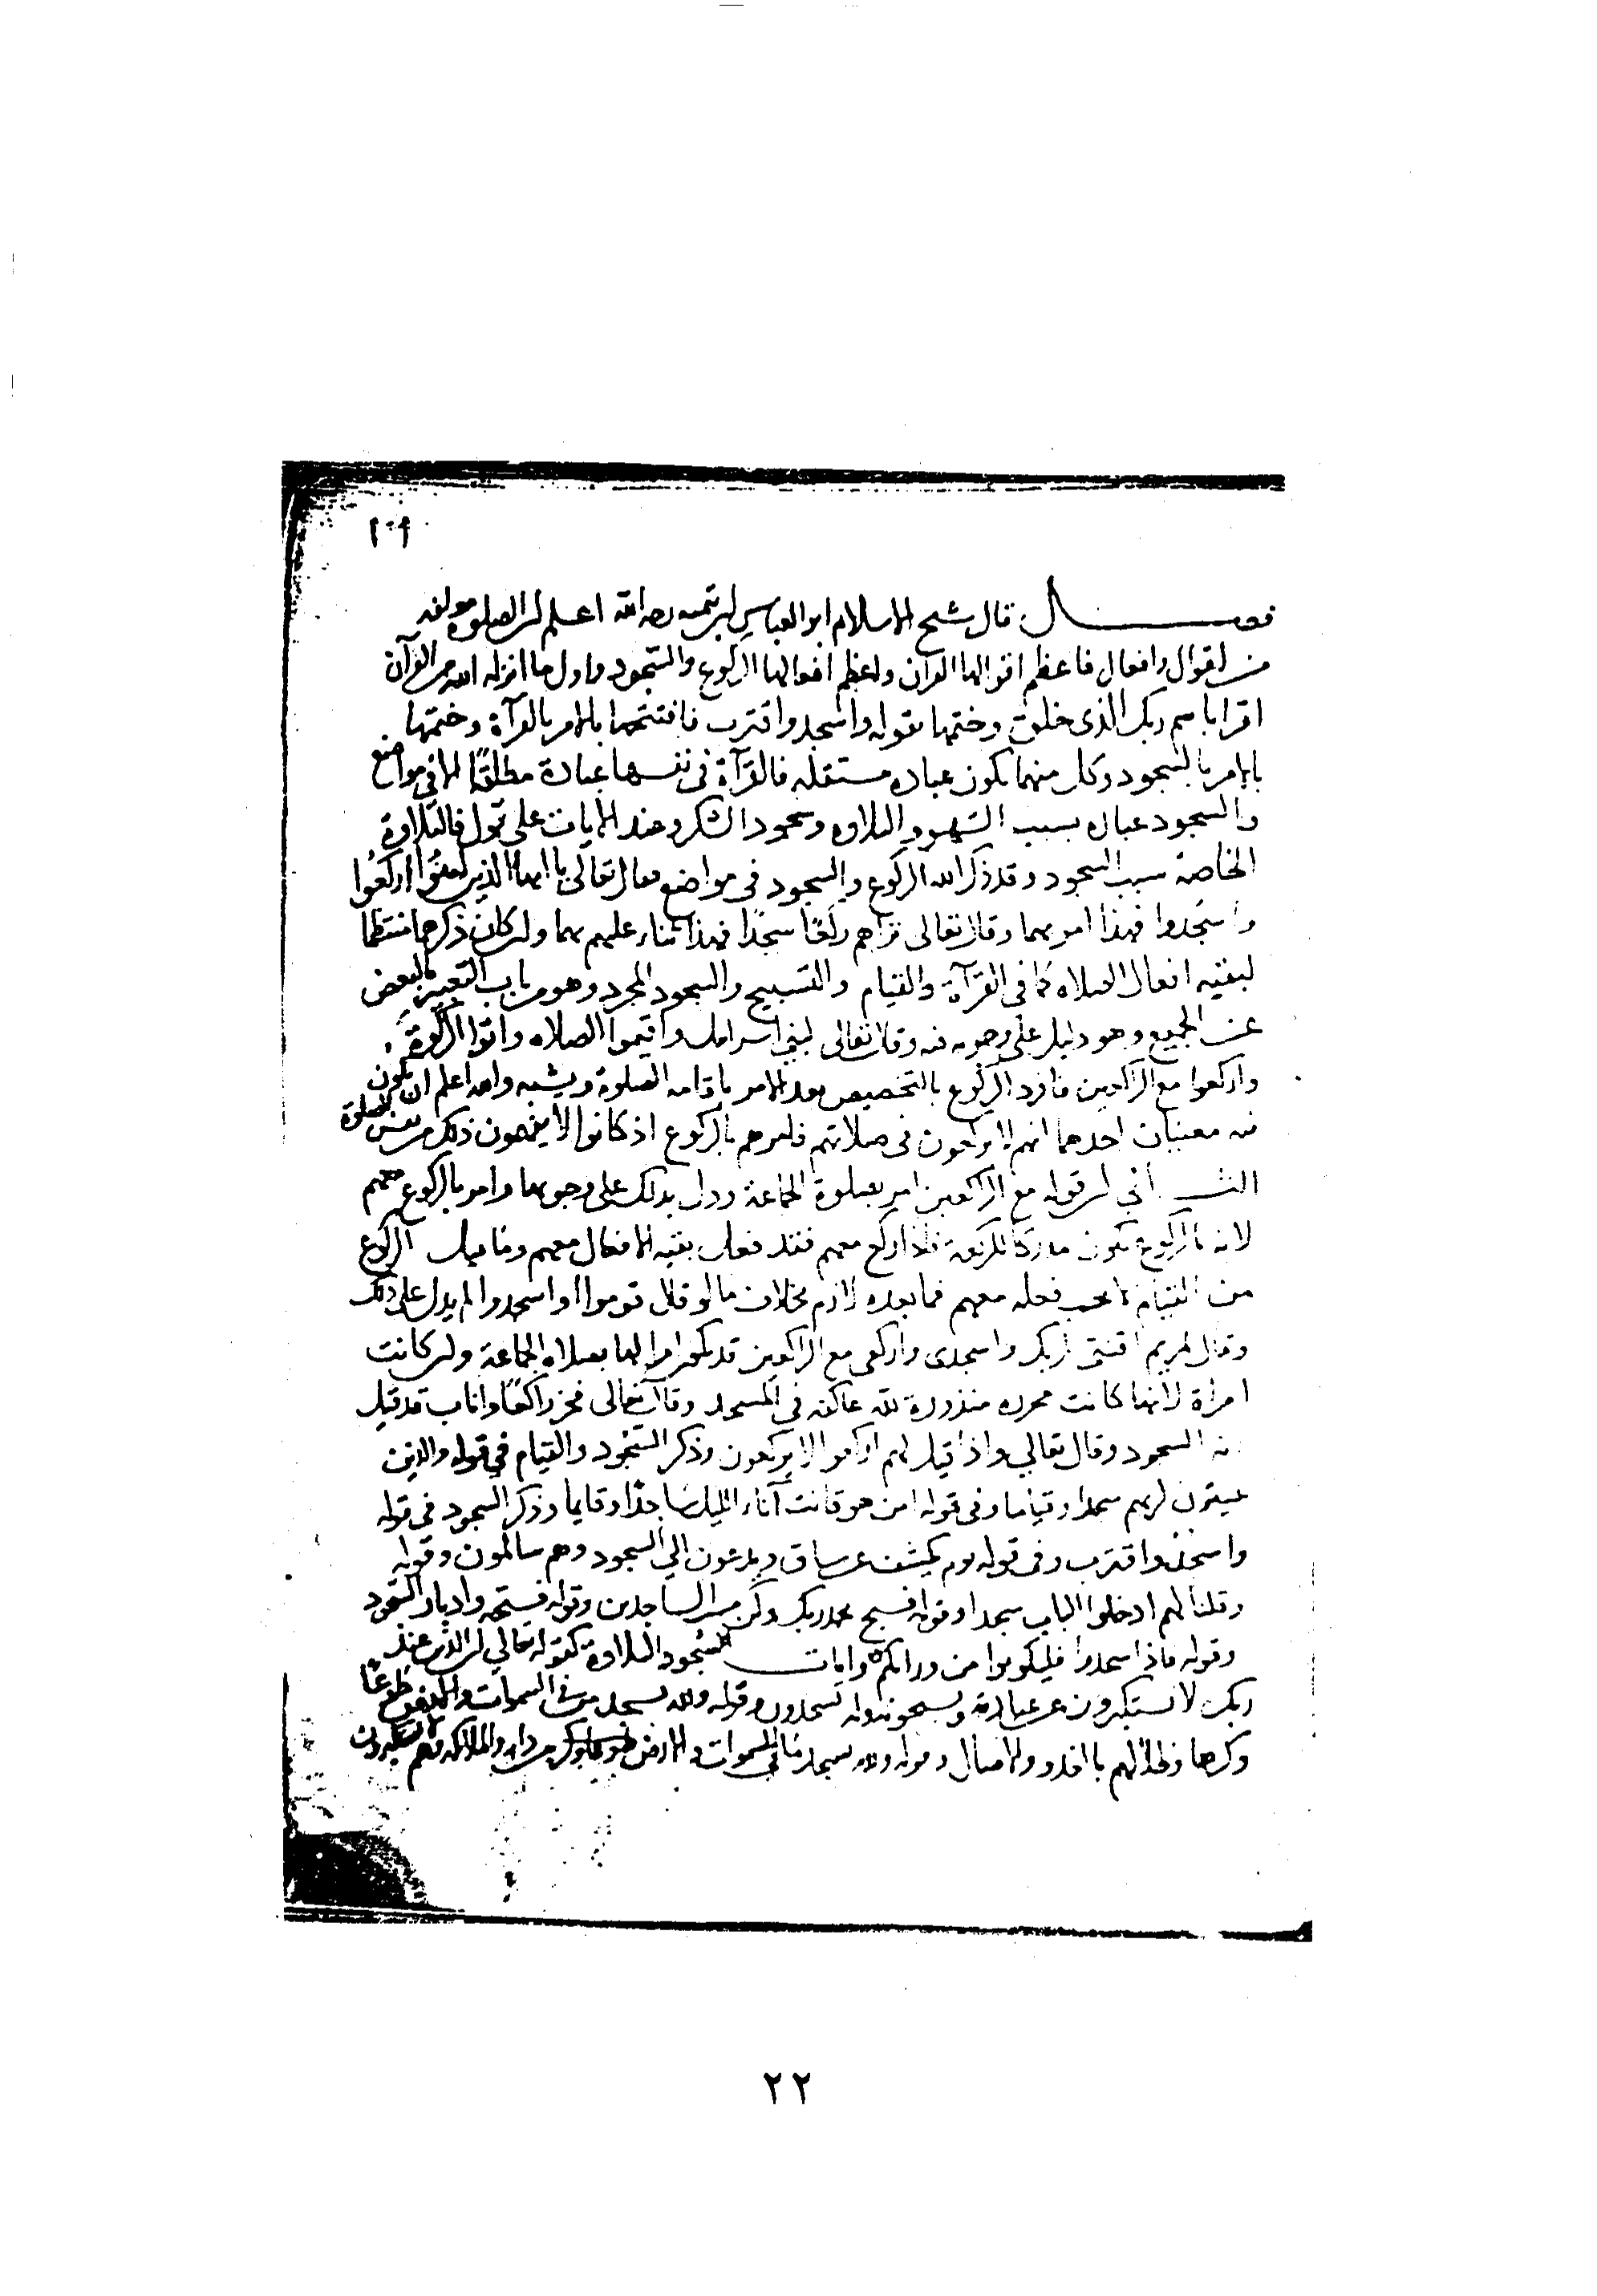 ١٠٩
فصل قال شيخ الاسلام ابو العباس ابن تيميه رحمه الله اعلم ان الصلوة مولفه
من اقوال وافعال فاعظم اقوالها القران واعظم افعالها الركوع والسجود واول ما انزله الله من القرآن
اقرا باسم ربك الذى خلق وختمها بقوله واسجد واقترب فافتتحها بالامر بالقرآة وختمها
بالامر بالسجود وكل منهما يكون عباده مستقله فالقرآة فى نفسها عبادة مطلقًا الا فى مواضع
والسجود عباده بسبب السهو والتلاوه وسجود الشكر وعند الايات على قول فالتلاوة
الخاصة سبب السجود وقد ذكر الله الركوع والسجود فى مواضع فقال تعالى يا ايها الذين آمنوا اركعوا
واسجدوا فهذا امر بهما وقال تعالى تراهم ركعًا سجدًا فهذا ثناء عليهم بهما وان كان ذكرهما منتظما
لبقيه افعال الصلاه كما فى القرآة والقيام والتسبيح والسجود المجرد وهو من باب التعبير بالبعض
عن الجميع وهو دليل على وجوبه فيه وقال تعالى لبنى اسرايل واقيموا الصلاه واتوا الزكوة
واركعوا مع الراكعين فافرد الركوع بالتخصيص بعد الامر باقامه الصلوة ويشبه والله اعلم ان يكون
فيه معنيان احدهما انهم لا يركعون فى صلاتهم فامرهم بالركوع اذ كانوا لا يفهمون ذلك من نفس الصلوة
الثـــانى ان قوله مع الراكعين امر بصلوة الجماعة ودل بذلك على وجوبها وامر بالركوع معهم
لانه بالركوع يكون مدركا للركعة فاذا ركع معهم فقد فعل بقيه الافعال معهم وما قبل الركوع
من القيام لا يجب فعله معهم فما بعده لازم بخلاف ما لو قال قوموا او اسجدوا لم يدل على ذلك
وقال لمريم اقنتى لربك واسجدى واركعى مع الراكعين قد يكون امرا لها بصلاه الجماعة وان كانت
امراة لانها كانت محرره منذورة لله عاكفه فى المسجد وقال تعالى فخر راكعًا واناب قد قيل
نه السجود وقال تعالى واذا قيل لهم اركعوا لا يركعون وذكر السجود والقيام فى قوله والذين
يبيتون لربهم سجدا وقياما وفى قوله امن هو قانت آناء الليل ساجدًا وقايما وذكر السجود فى قوله
واسجد واقترب وفى قوله يوم يكشف عن ساق ويدعون الى السجود وهم سالمون وقوله
وقلنا لهم ادخلوا الباب سجدا وقوله فسبح بحمد ربك وكن من الساجدين وقوله فسبحه وادبار السجود
وقوله فاذا سجدوا فليكونوا من ورائكم وايات سجود التلاوة كقوله تعالى ان الذين عند
ربك لا يستكبرون عن عبادته ويسبحونه وله يسجدون وقوله ولله يسجد من فى السموات والارض طوعًا
وكرها وظلالهم بالغدو والاصال وقوله ولله يسجد ما فى السموات وما فى الارض من دابه والملائكه وهم لا يستكبرون
٢٢